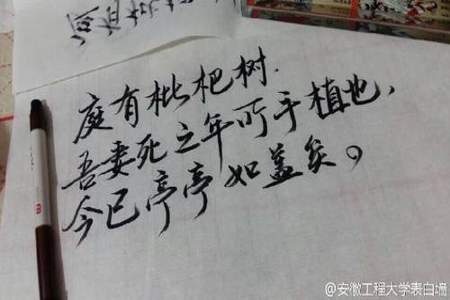 庭有枇杷树.
吾妻死之年所手植也,
今已亭亭如盖矣。
@安徽工程大学表白墙